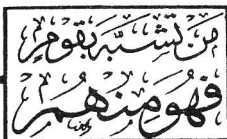 مَنْ تَشَبَّهَ بِقَوْمٍ
فَهُوَ مِنْهُمْ